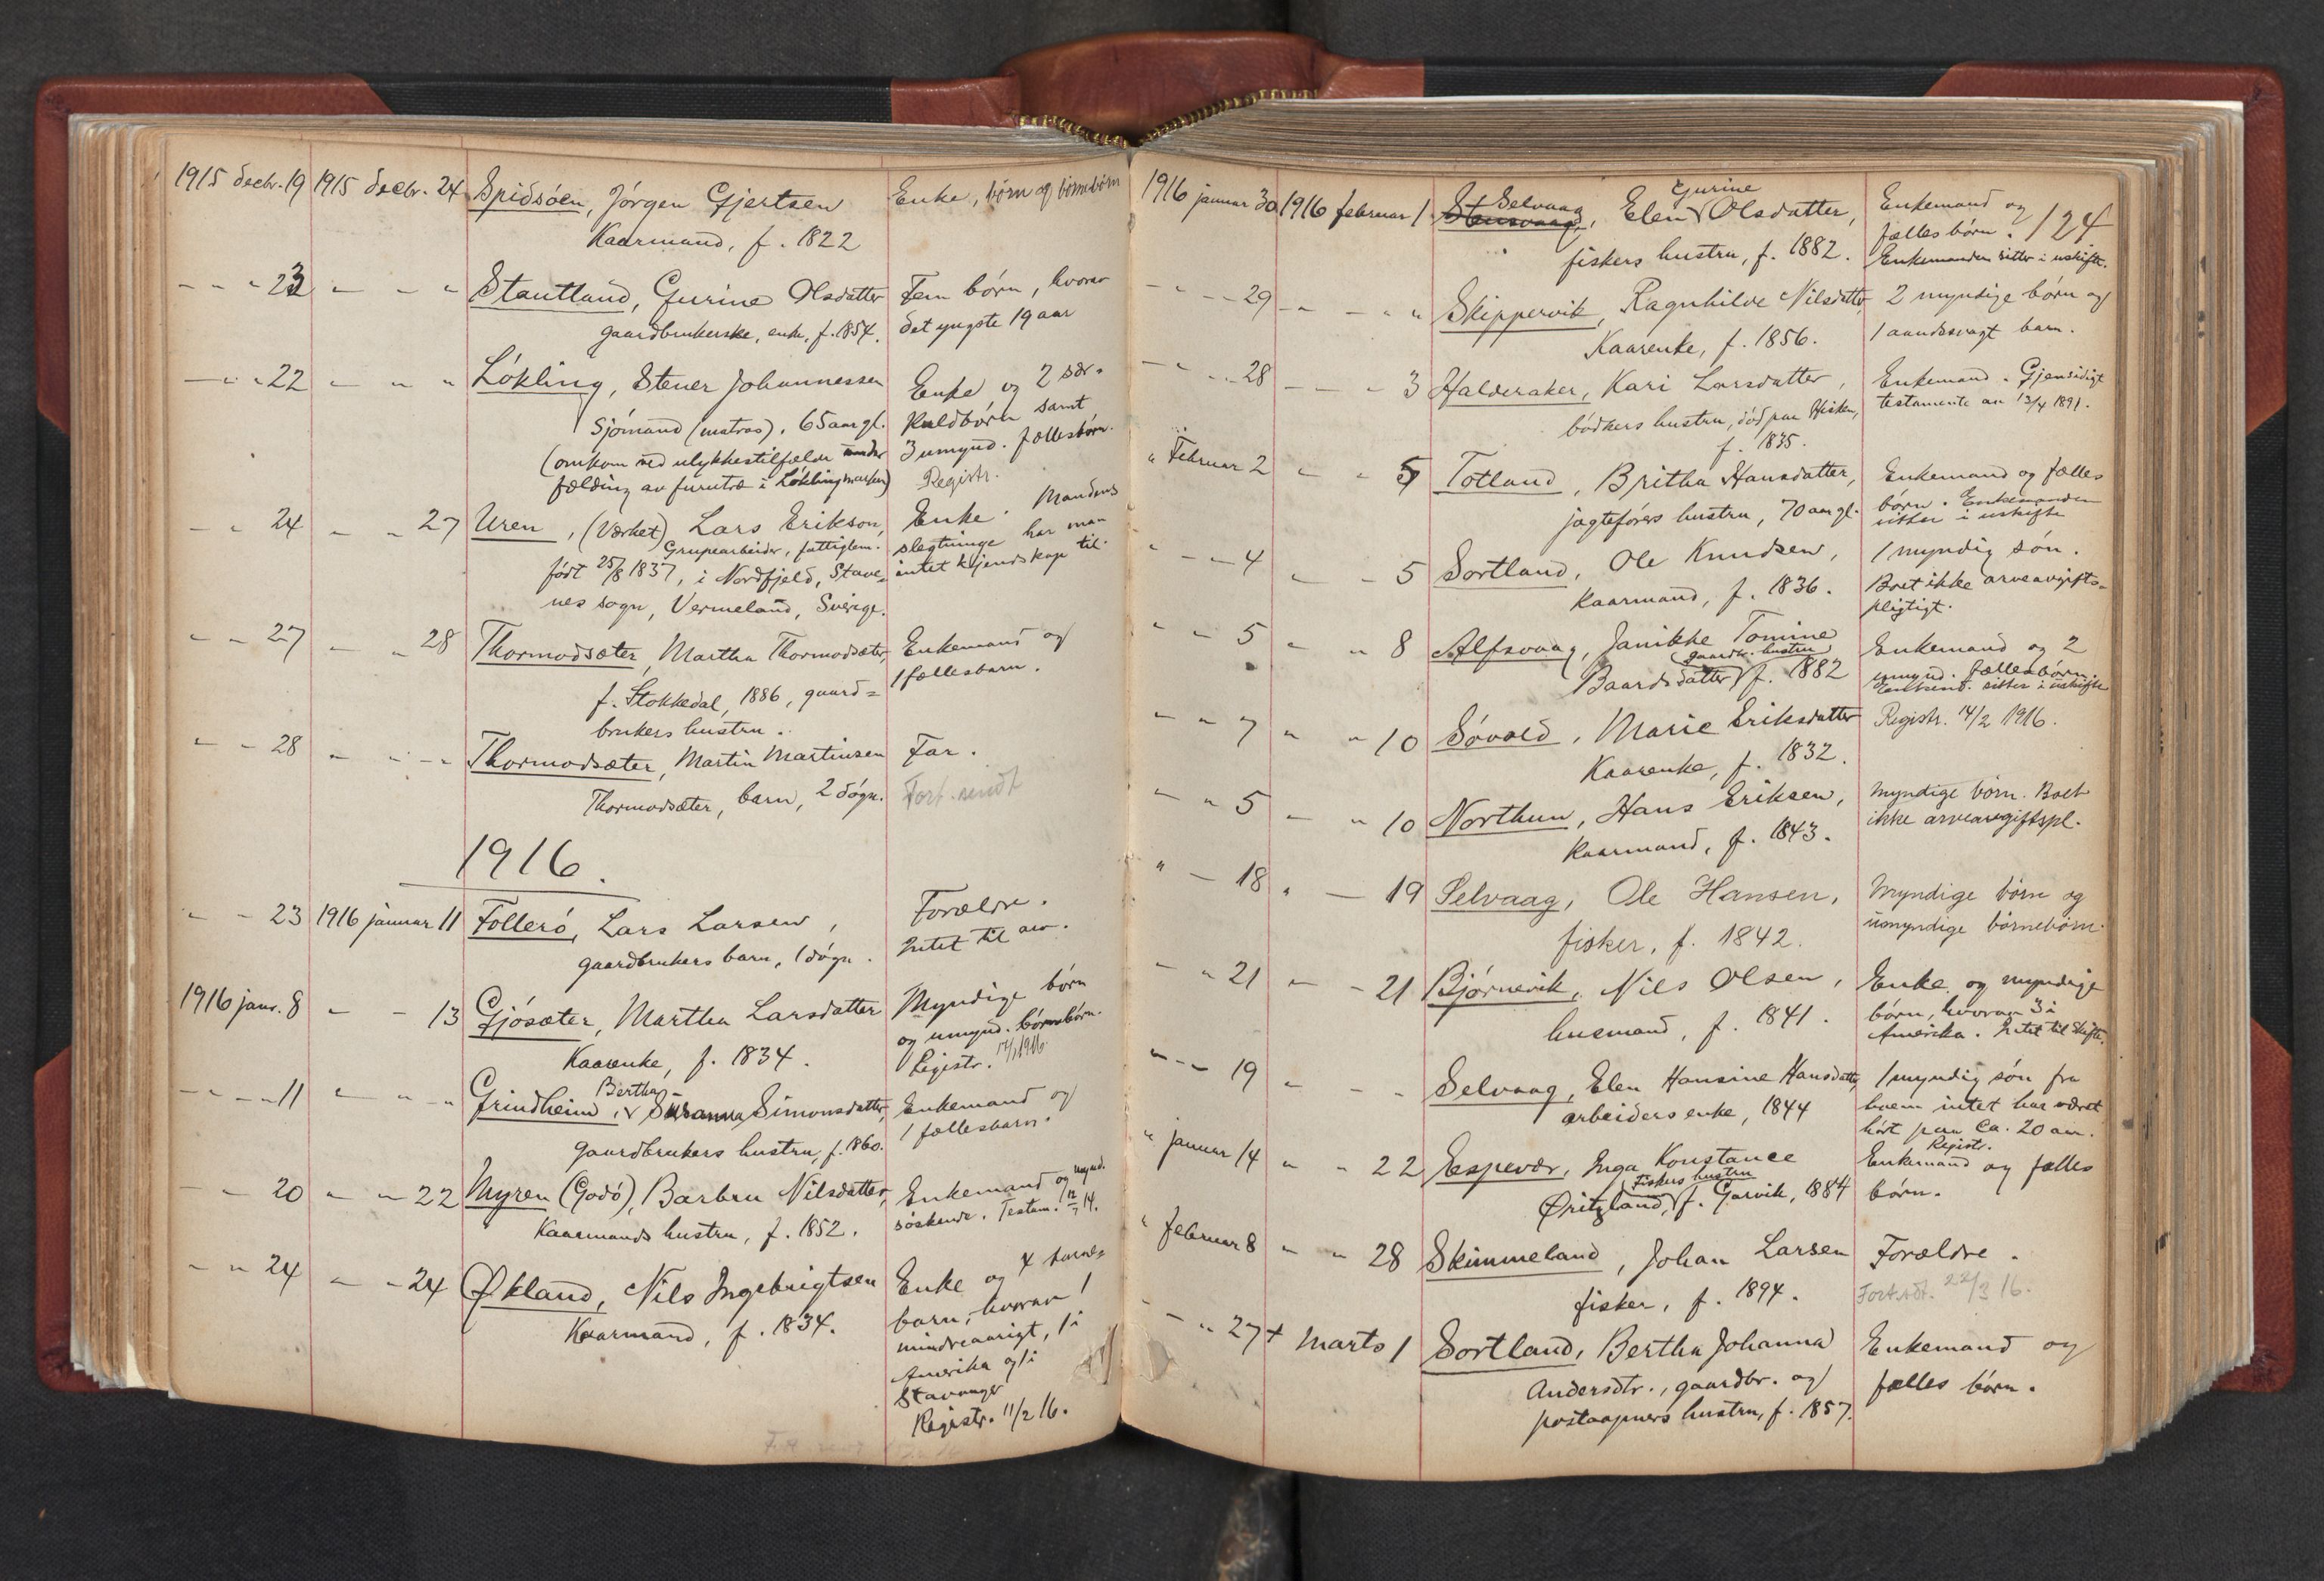 1915 decbr. 19 1915 decbr. 24 Spidsöen, Jörgen Gjertsen Enke, börn og börnebörn
Kaarmand, f. 1822
" " " 23 " " " Stautland, Gurine Olsdatter Fem börn, hvorav
gaardbrukerske, enke, f. 1854. det yngste 19 aar
" " " 22 " " " Lökling, Stener Johannessen Enke og 2 sær-
Sjömand (matros), 65 aar gl. kuldbörn samt
(omkom ved ulykkestilfælde under 3 umynd. fællesbörn.
fælding av furutræ i Löklingmarken) Registr.
" " 24 " " 27 Uren, (Værket) Lars Erikson, Enke. Mandens
Grupearbeider, fattiglem. slegtninge har man
født 25/8 1837, i Nordfjeld, Stave- intet kjendskap til.
nes sogn, Vermeland, Sverige.
" " 27 " " 28 Thormodsæter, Martha Thormodsæter, Enkemand og
f. Stokkedal, 1886, gaard- 1 fællesbarn.
brukers hustru.
" " 28 " " " Thormodsæter, Martin Martinsen Far.
Thormodsæter, barn, 2 dögn. Fort. sendt
1916.
" " 23 1916 januar 11 Folleró, Lars Larsen, Forældre.
gaardbrukers barn, 1 dögn. Intet til arv.
1916 janr. 8 " " 13 Gjösæter, Martha Larsdatter Myndige börn
og umynd. börnebörn.
Kaarenke, f. 1834. Registr. 1916.
" " " 11 " " " Grindheim, Bertha Susanna Simonsdatter, Enkemand og
gaardbrukers hustru, f. 1860. 1 fællesbarn.
" " 20 " " 22 Myren (Godö), Barbru Nilsdatter, Enkemand og mynd.
Kaarmands hustru, f. 1852. söskende. Testam. 14.
" " 24 " " 24 Økland, Nils Ingebrigtsen Enke og 4
Kaarmand, f. 1834. barn, hvorav 1
mindreaarigt, 1 i
Amerika og 1 i
Stavanger
Registr. 11/2 16.
124
1916 januar 30 1916 februar 1 Stensvaag Selvaag, Elen Gurine Olsdatter, Enkemand og
fælles börn.
fiskers hustru, f. 1882. Enkemanden sitter i uskifte.
" " " 29 " " " " Skippervik, Ragnhilde Nilsdatter, 2 myndige börn og
Kaarenke, f. 1856. 1 aandssvagt barn.
" " " 28 " " " 3 Halderaker, Kari Larsdatter, Enkemand. Gjensidigt
bödkers hustru, död paa Hisken, testamente av 13/4 1891.
f. 1835.
" Februar 2 " " 5 Totland, Britha Hansdatter, Enkemand og fælles
jagteförers hustru, 70 aar gl. börn. Enkemanden
sitter i uskifte
" " 4 " " 5 Sortland, Ole Knudsen, 1 myndig sön.
Kaarmand, f. 1836. Boet ikke arveavgifts-
pligtigt.
" " 5 " " 8 Alfsvaag, Janikke Tomine Enkemand og 2
Baardsdatter gaardbr. hustru f. 1882 umynd. fællesbörn.
Enkemd. sitter i uskifte
" " 7 " " 10 Sövold, Marie Eriksdatter Registr. 14/2 1916.
Kaarenke, f. 1832.
" " 5 " " 10 Northun, Hans Eriksen, Myndige börn. Boet
Kaarmand, f. 1843. ikke arveavgiftspl.
" " 18 " " 19 Selvaag, Ole Hansen, Myndige börn og
fisker, f. 1842. umyndige börnebörn.
" " 21 " " 21 Björnevik, Nils Olsen, Enke og myndige
husmand, f. 1841. börn, hvorav 3 i
Amerika. Intet til skifte.
" " 19 " " " Selvaag, Elen Hansine Hansdatter, 1 myndig sön fra
arbeiders enke, 1844 hvem intet har været
hört paa ca. 20 aar.
Registr.
" januar 14 " " 22 Espevær, Inga Konstance Enkemand og fælles
Øritzland, fiskers hustru f. Garvik, 1884 börn.
" februar 8 " " 28 Skimmeland, Johan Larsen Forældre.
fisker, f. 1894. Fort. sdt. 22/3 16.
" " 27 + Marts 1 Sortland, Bertha Johanna Enkemand og
Andersdtr., gaardbr. og fælles börn.
postaapners hustru, f. 1857.